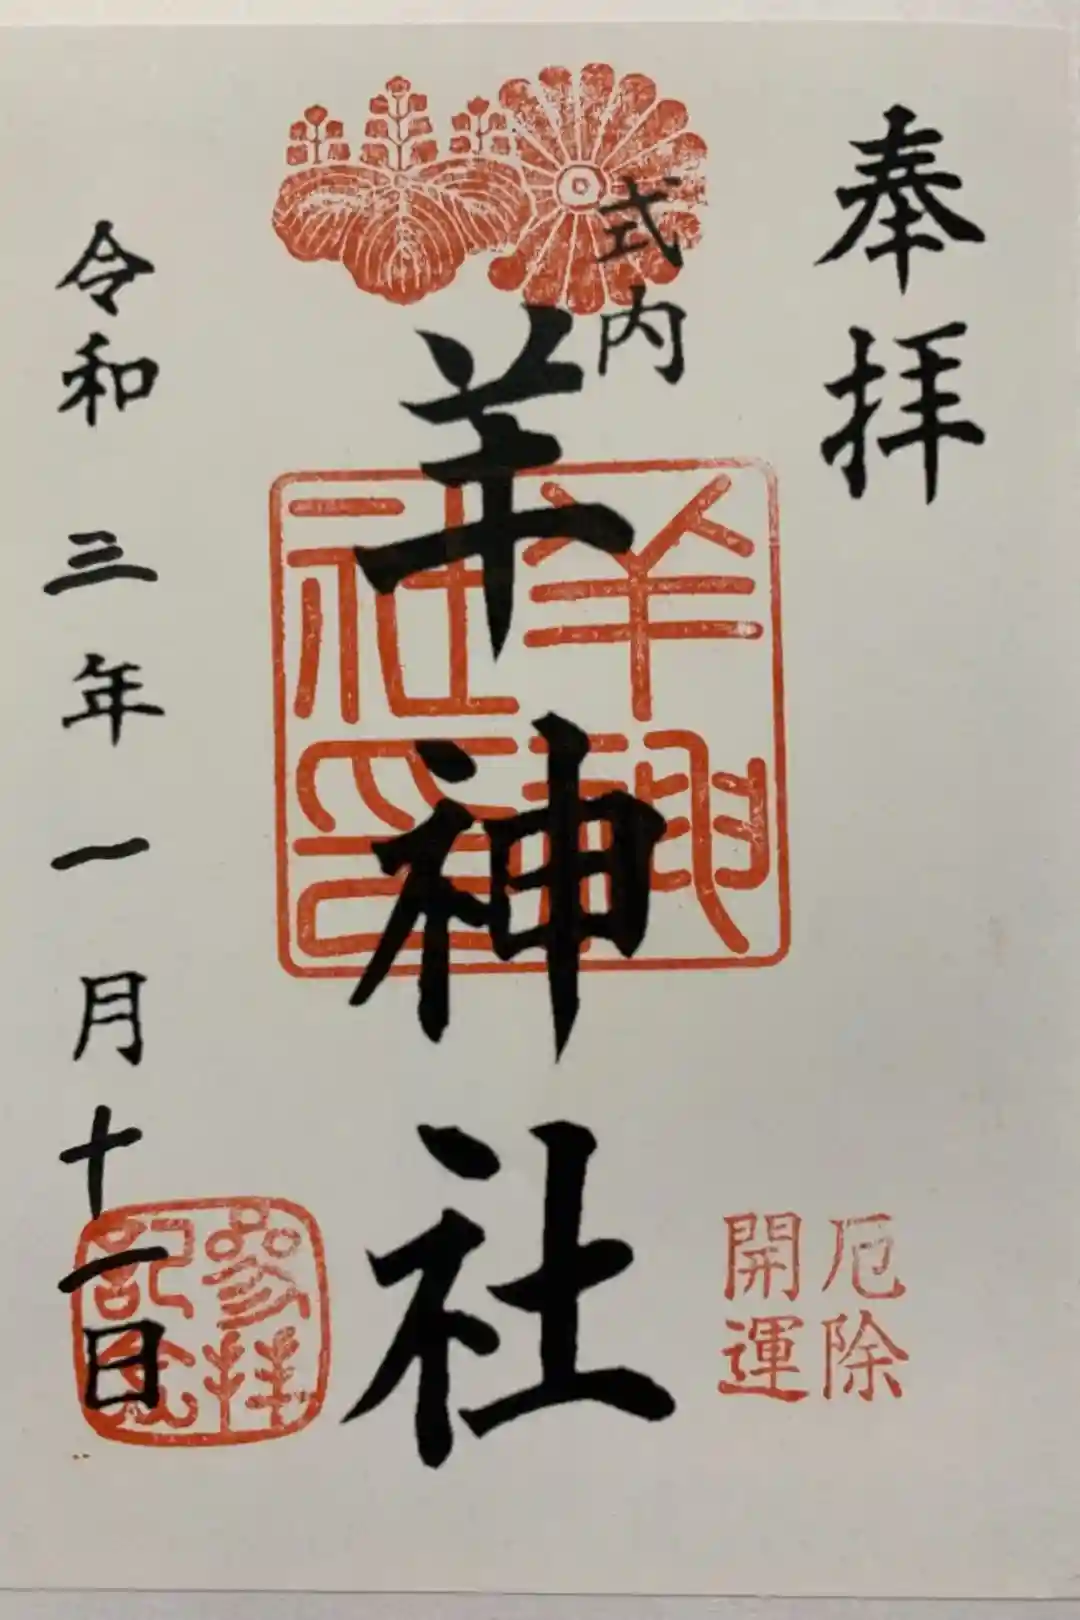 奉拝
式内
羊神社
令和三年一月十一日
厄除
開運
羊神
社印
参拝
記念